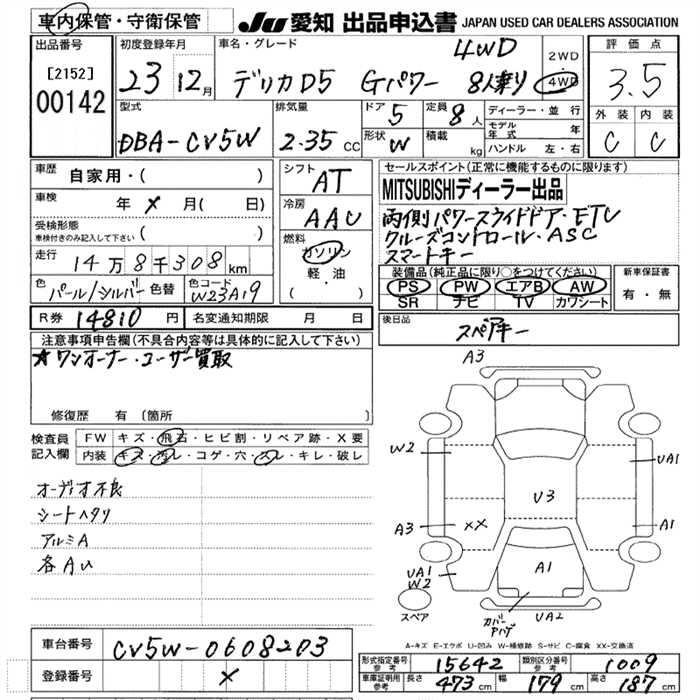 車内保管・守衛保管
JU 愛知 出品申込書 JAPAN USED CAR DEALERS ASSOCIATION
出品番号
[2152]
00142
初度登録年月
23 12月
車名・グレード
デリカD5 Gパワー 4WD 8人乗り
2WD
4WD
評価点
3.5
外装 内装
C C
型式
DBA-CV5W
排気量
2.35 CC
ドア 5
形状 W
定員 8人
積載 kg
ディーラー・並行
モデル年式 年
ハンドル 左・右
車歴
自家用・( )
車検
年 × 月( 日)
受検形態
車検付きのみ記入して下さい ( )
走行
14万8千308km
色 パール/シルバー 色替
色コード W23A19
シフト
AT
冷房
AAC
燃料
ガソリン
軽・油
( )
セールスポイント(正常に機能するものに限ります)
MITSUBISHIディーラー出品
両側パワースライドドア・ETC
クルーズコントロール・ASC
スマートキー
装備品(純正品に限り○をつけてください)
PS PW エアB AW
SR ナビ TV カワシート
新車保証書
有・無
R券 14810 円
名変通知期限 月 日
後日品
スペアキー
注意事項申告欄(不具合内容等は具体的に記入して下さい)
★ワンオーナー・ユーザー買取
修復歴 有 (箇所 )
検査員記入欄
FW キズ・飛石・ヒビ割・リペア跡・X要
内装 キズ・汚レ・コゲ・穴・スレ・キレ・破レ
オーディオ不良
シートヘタリ
アルミA
各AU
A3
W2
UA1
U3
A3
XX
A1
UA1
W2
A1
スペア
カバー
UA2
A-キズ E-エクボ U-凹み W-補修跡 S-サビ C-腐食 XX-交換済
車台番号 CV5W-0608203
登録番号 ×
形式指定番号 参考 15642
類別区分番号 参考 1009
車庫証明用 参考 長さ 473cm 幅 179cm 高さ 187cm